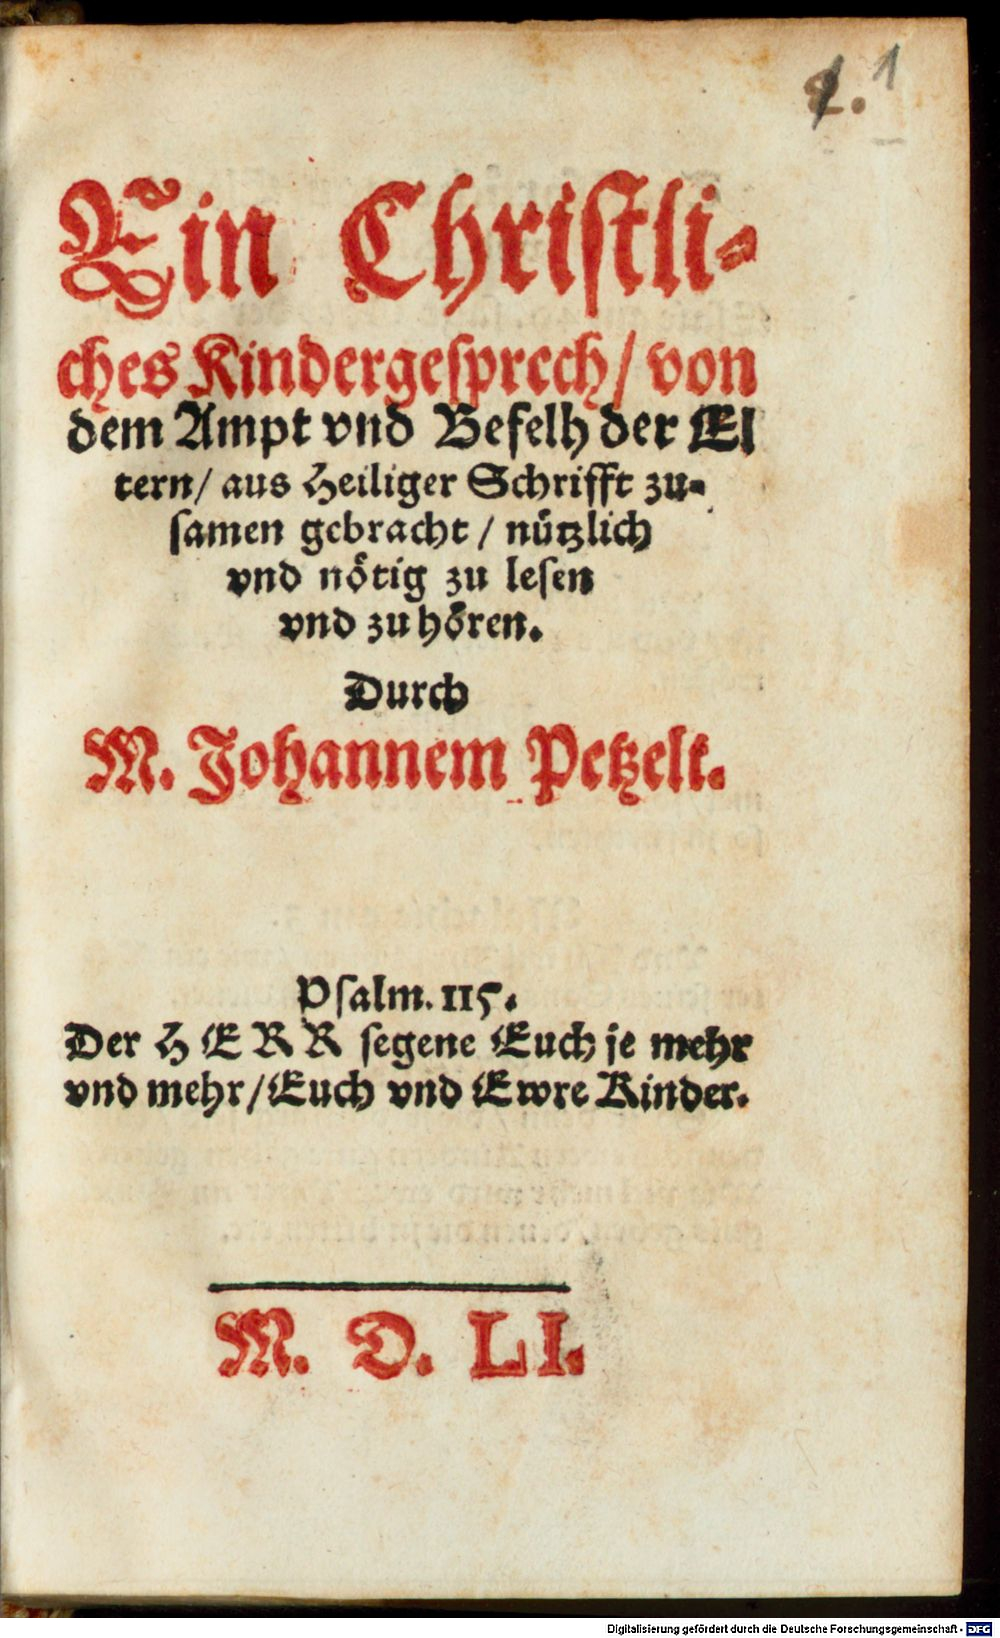 1. 1
Ein Christli-
ches Kindergesprech / von
dem Ampt vnd Befelh der El
tern / aus Heiliger Schrifft zu-
samen gebracht / nützlich
vnd nötig zu lesen
vnd zu hören.
Durch
M. Johannem Petzelt.
Psalm. 115.
Der HERR segene Euch je mehr
vnd mehr / Euch vnd Ewre Kinder.
M. D. LI.
Digitalisierung gefördert durch die Deutsche Forschungsgemeinschaft - DFG